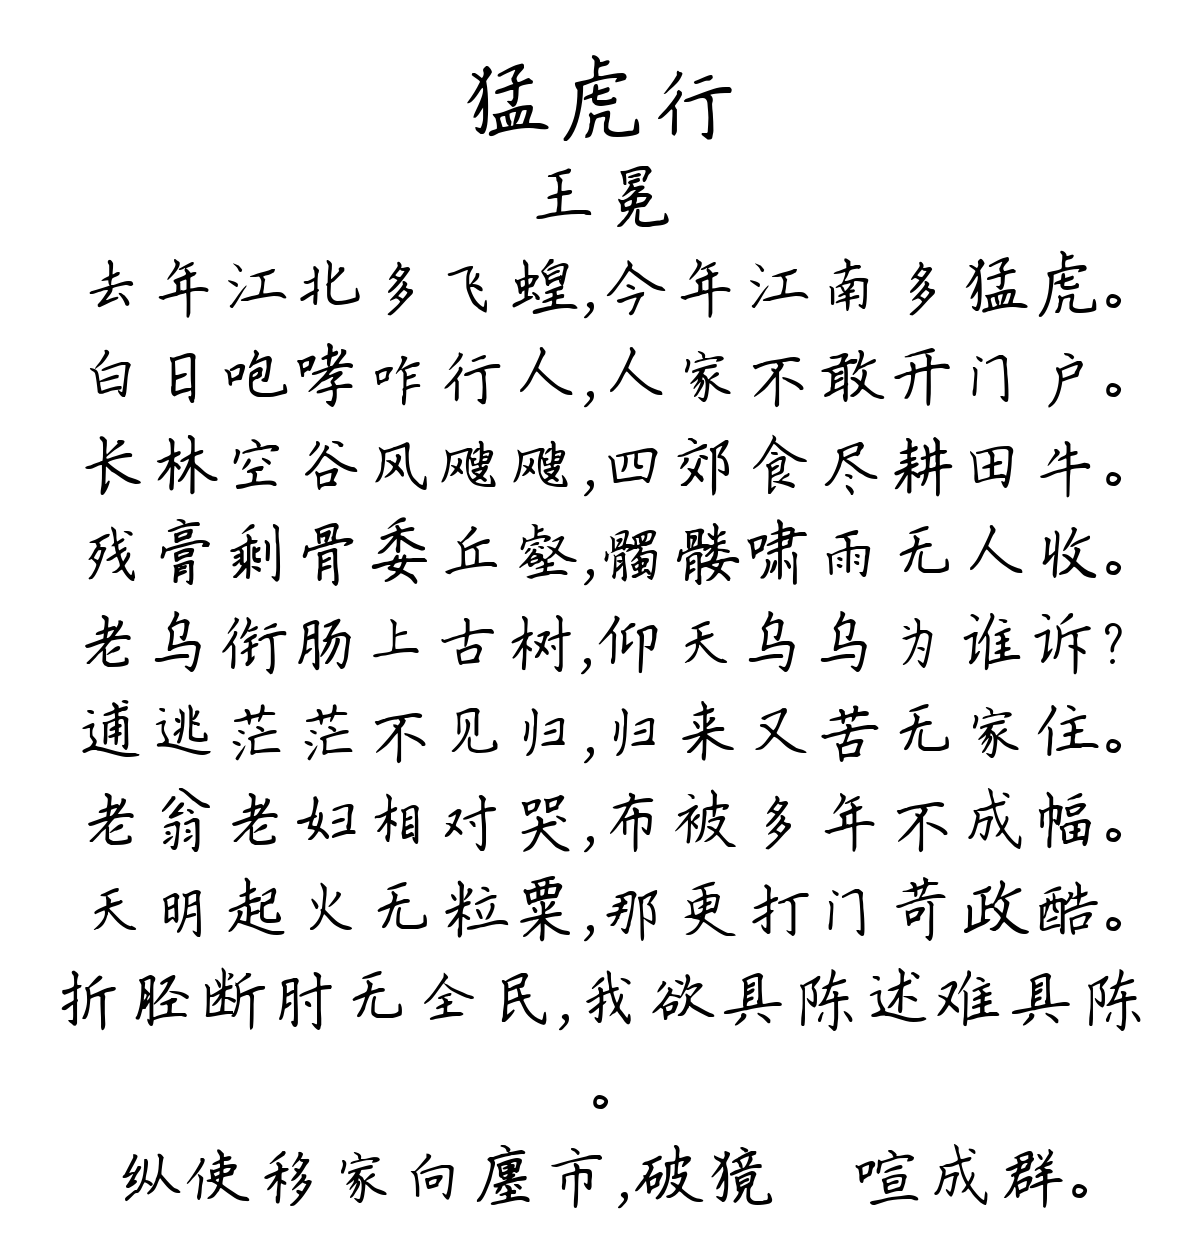 猛虎行
王冕
去年江北多飞蝗,今年江南多猛虎。
白日咆哮咋行人,人家不敢开门户。
长林空谷风飕飕,四郊食尽耕田牛。
残膏剩骨委丘壑,髑髅啸雨无人收。
老乌衔肠上古树,仰天乌乌为谁诉?
逋逃茫茫不见归,归来又苦无家住。
老翁老妇相对哭,布被多年不成幅。
天明起火无粒粟,那更打门苛政酷。
折胫断肘无全民,我欲具陈述难具陈
。
纵使移家向廛市,破獍 喧成群。